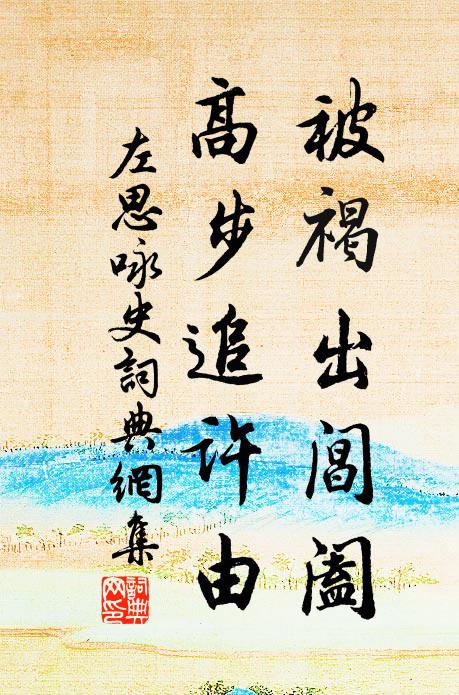 被褐出閶闔
高步追許由
左思咏史詞典網集
詞典网印